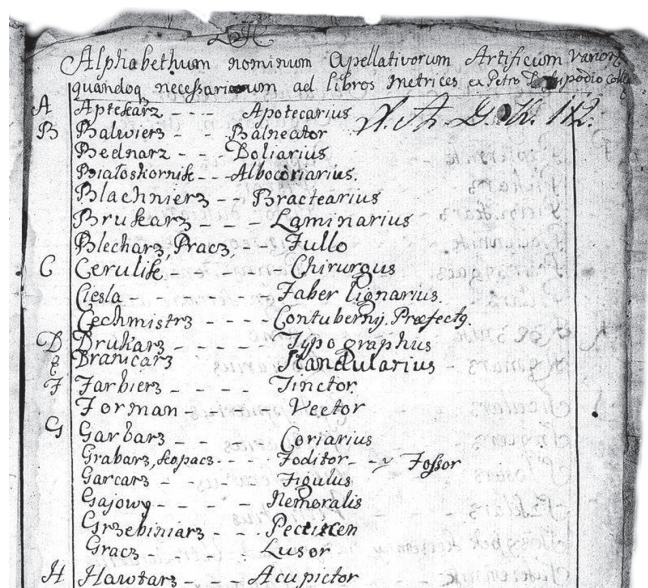 Alphabethum nominum Apellativorum Artificum varior
quandoq necessarium ad libros metrices ex Petro
A Aptekarz - - - Apotecarius
B Balwierz - - - Balneator
Bednarz - - - Doliarius
Białoskornik - - - Albocoriarius.
Blachnierz - - Bractearius
Brukarz - - - Laminarius
Blecharz, Pracz, - - Fullo
C Cerulik - - - Chirurgus
Ciesla - - - Faber lignarius.
Cechmistrz - - - - Contubernij Præfectq.
D Drukarz - - - - Typographus
Branicarz Standularius
F Farbierz - - - Tinctor
Forman - - - Vector
G Garbarz - - - Coriarius
Grabarz, kopacz - - - Foditor - - y Fossor
Garcarz - - Figulus
Gajowy - - - Nemoralis
Grzebiniarz - - Pectinen
Gracz - Lusor
H Hawtarz - - - Acupictor